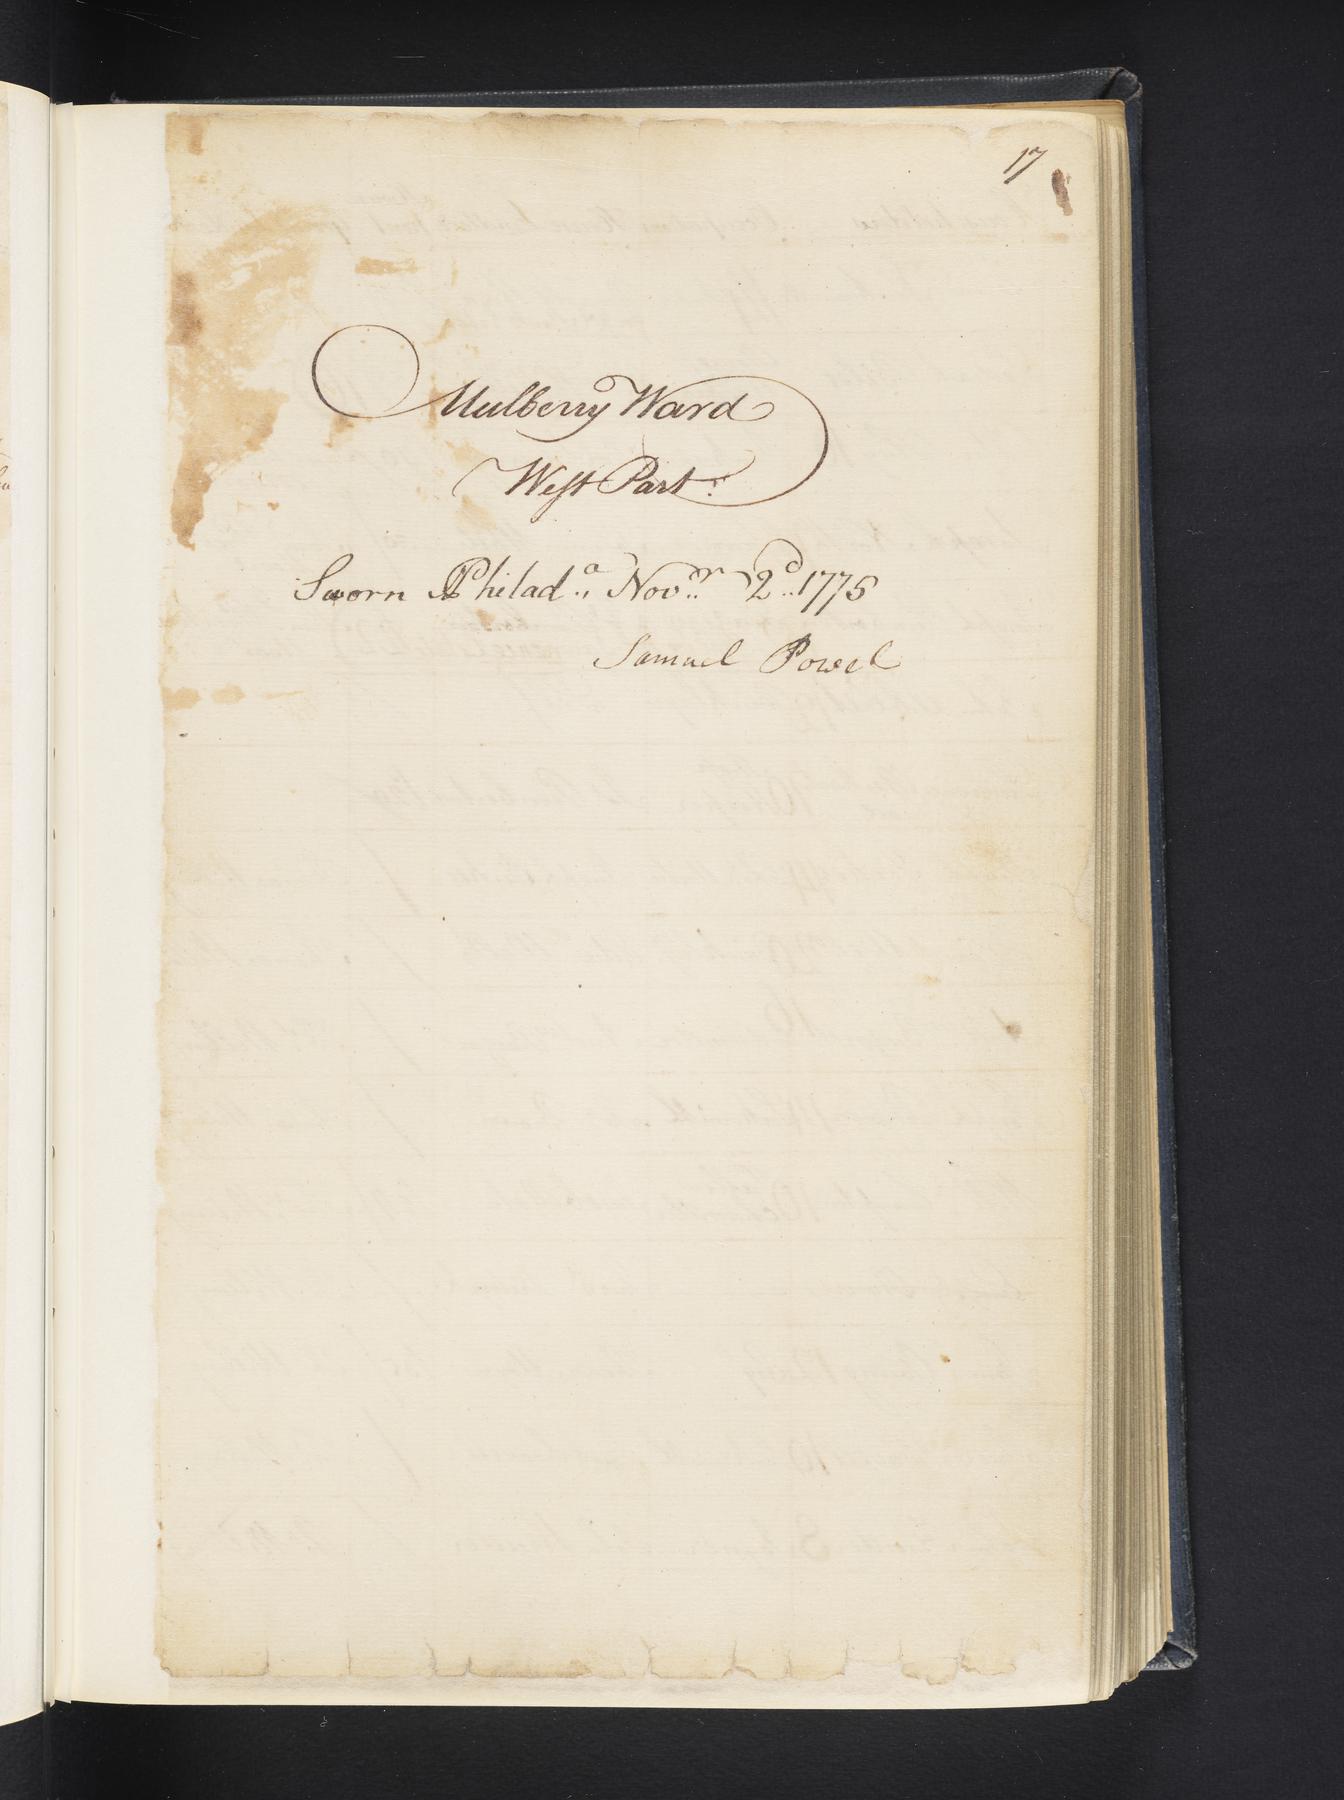 17
Mulberry Ward
West Part.
Sworn Philad.a Nov.r 2.d 1775
Samuel Powel